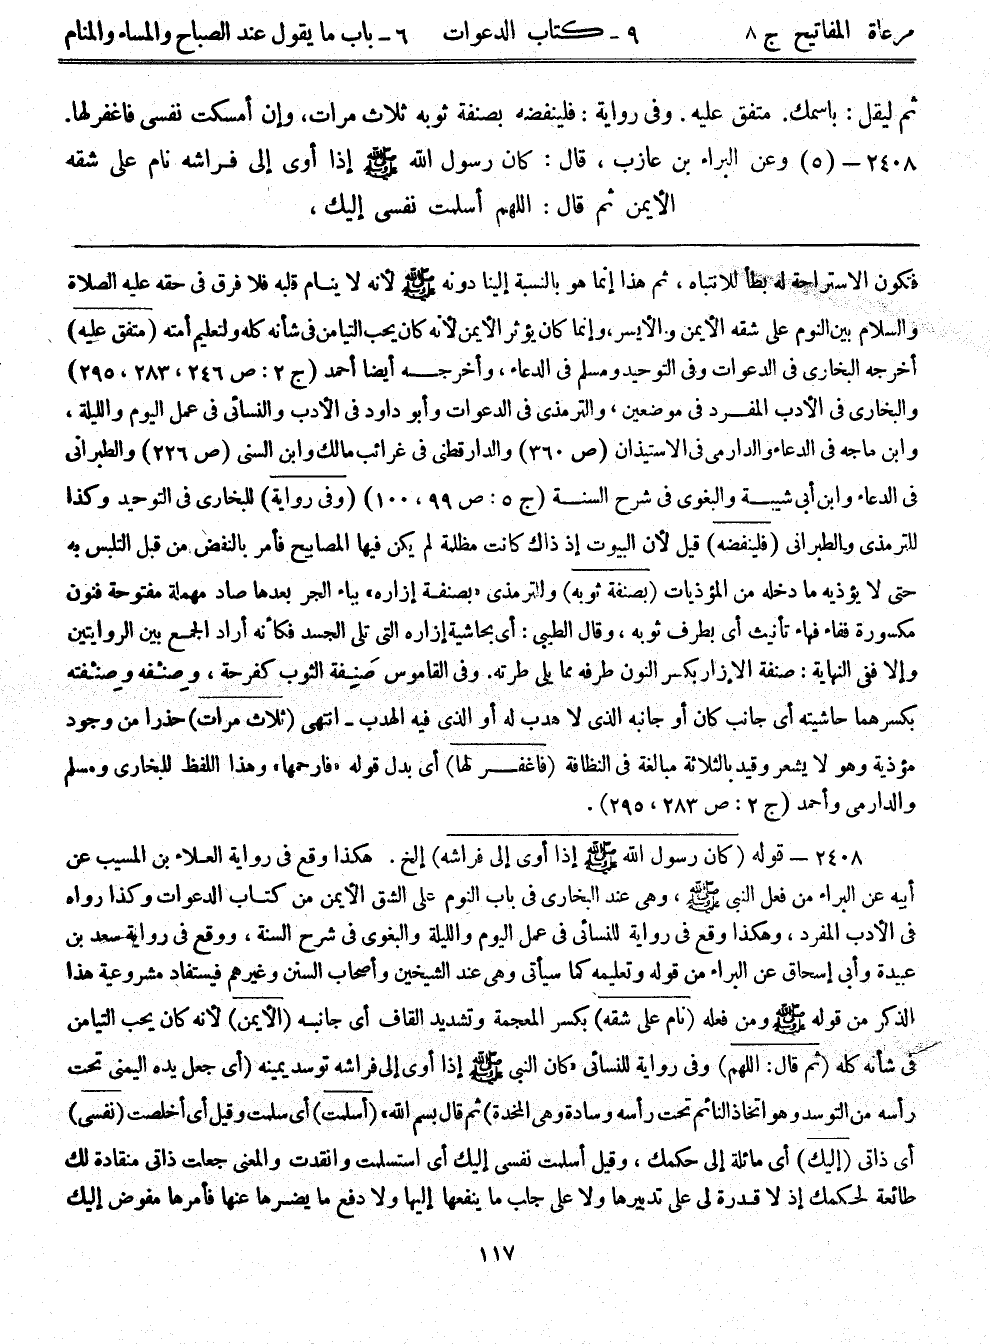 مرعاة المفاتيح ج ٨ ٩ - كتاب الدعوات ٦ - باب ما يقول عند الصباح والمساء والمنام
ثم ليقل : باسمك. متفق عليه. وفى رواية : فلينفضه بصنفة ثوبه ثلاث مرات، وإن أمسكت نفسى فاغفرلها.
٢٤٠٨ – (٥) وعن البراء بن عازب ، قال : كان رسول الله ﷺ إذا أوى إلى فراشه نام على شقه
الأيمن ثم قال : اللهم أسلمت نفسى إليك ،
فتكون الاستراحة له بطأ للانتباه ، ثم هذا إنما هو بالنسبة إلينا دونه ﷺ لأنه لا ينام قلبه فلا فرق فى حقه عليه الصلاة
والسلام بين النوم على شقه الأيمن والأيسر، وإنما كان يؤثر الأيمن لأنه كان يحب التيامن فى شأنه كله ولتعليم أمته (متفق عليه)
أخرجه البخارى فى الدعوات وفى التوحيد ومسلم فى الدعاء ، وأخرجه أيضا أحمد (ج ٢ : ص ٢٤٦ ، ٢٨٣ ، ٢٩٥)
والبخارى فى الأدب المفرد فى موضعين ، والترمذى فى الدعوات وأبو داود فى الأدب والنسائى فى عمل اليوم والليلة ،
وابن ماجه فى الدعاء والدارمى فى الاستيذان (ص ٣٦٠) والدارقطنى فى غرائب مالك وابن السنى (ص ٢٢٦) والطبرانى
فى الدعاء وابن أبى شيبة والبغوى فى شرح السنة (ج ٥ : ص ٩٩ ، ١٠٠) (وفى رواية) للبخارى فى التوحيد وكذا
للترمذى والطبرانى (فلينفضه) قيل لأن البيوت إذ ذاك كانت مظلمة لم يكن فيها المصابيح فأمر بالنفض من قبل التلبس به
حتى لا يؤذيه ما دخله من المؤذيات (بصنفة ثوبه) والترمذى «بصنفة إزاره» بباء الجر بعدها صاد مهملة مفتوحة فنون
مكسورة ففاء فهاء تأنيث أى بطرف ثوبه ، وقال الطيبى : أى بحاشية إزاره التى تلى الجسد فكأنه أراد الجمع بين الروايتين
وإلا ففى النهاية : صنفة الإزار بكسر النون طرفه مما يلى طرته. وفى القاموس صَنِفة الثوب كفرحة ، وصنفه وصنفته
بكسرهما حاشيته أى جانب كان أو جانبه الذى لا هدب له أو الذى فيه الهدب - انتهى (ثلاث مرات) حذرا من وجود
مؤذية وهو لا يشعر وقيد بالثلاثة مبالغة فى النظافة (فاغفر لها) أى بدل قوله «فارحمها» وهذا اللفظ للبخارى ومسلم
والدارمى وأحمد (ج ٢ : ص ٢٨٣ ، ٢٩٥) .
٢٤٠٨ – قوله (كان رسول الله ﷺ إذا أوى إلى فراشه) إلخ . هكذا وقع فى رواية العلاء بن المسيب عن
أبيه عن البراء من فعل النبى ﷺ ، وهى عند البخارى فى باب النوم على الشق الأيمن من كتاب الدعوات وكذا رواه
فى الأدب المفرد ، وهكذا وقع فى رواية للنسائى فى عمل اليوم والليلة والبغوى فى شرح السنة ، ووقع فى رواية سعد بن
عبيدة وأبى إسحاق عن البراء من قوله وتعليمه كما سيأتى وهى عند الشيخين وأصحاب السنن وغيرهم فيستفاد مشروعية هذا
الذكر من قوله ﷺ ومن فعله (نام على شقه) بكسر المعجمة وتشديد القاف أى جانبه (الأيمن) لأنه كان يحب التيامن
فى شأنه كله (ثم قال: اللهم) وفى رواية للنسائى «كان النبى ﷺ إذا أوى إلى فراشه توسد يمينه (أى جعل يده اليمنى تحت
رأسه من التوسد وهو اتخاذ النائم تحت رأسه وسادة وهى المخدة) ثم قال بسم الله» (أسلمت) أى سلمت وقيل أى أخلصت (نفسى)
أى ذاتى (إليك) أى مائلة إلى حكمك ، وقيل أسلمت نفسى إليك أى استسلمت وانقدت والمعنى جعلت ذاتى منقادة لك
طائعة لحكمك إذ لا قدرة لى على تدبيرها ولا على جلب ما ينفعها إليها ولا دفع ما يضرها عنها فأمرها مفوض إليك
١١٧